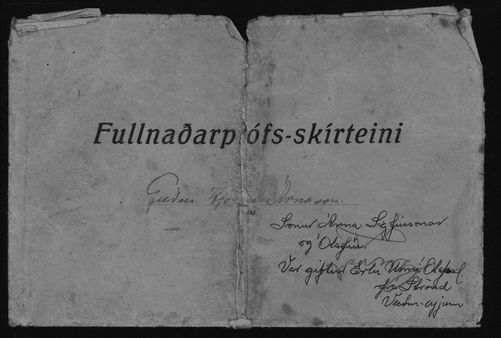 Fullnaðarprófs-skírteini
Árnason.
Sonur Árna Sigfússonar
og Ólafíu.
Var giftur Erlu Unni Ólafsd
frá Strönd
Vestm.eyjum